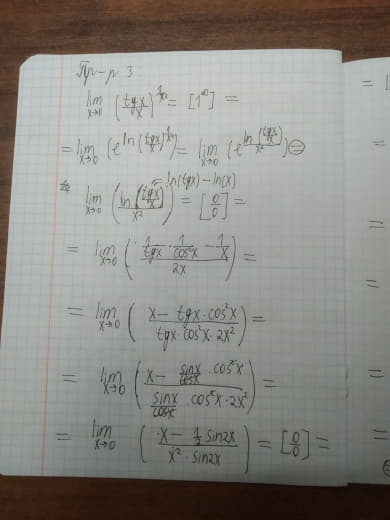 Пр-р 3.
lim x→0 (tgx/x)^(1/x²) = [1^∞] =
= lim x→0 (e^(ln(tgx/x)^(1/x²))) = lim x→0 (e^(ln(tgx/x)/x²)) ⊜
ln(tgx) – ln(x)
lim x→0 (ln(tgx/x)/x²) = [0/0] =
= lim x→0 ((1/tgx · 1/cos²x – 1/x)/2x) =
= lim x→0 ((x – tgx · cos²x)/(tgx · cos²x · 2x²)) =
= lim x→0 ((x – sinx/cosx · cos²x)/(sinx/cosx · cos²x · 2x²)) =
= lim x→0 ((x – 1/2 sin2x)/(x² · sin2x)) = [0/0] =